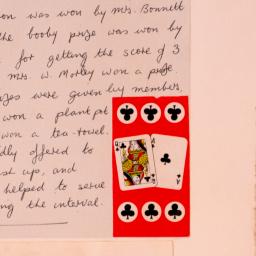 on was won by Mrs. Bonnett
the booby prize was won by
for getting the score of 3
Mrs. W. Morley won a prize.
zes were given by members.
won a plant pot
won a tea-towel.
dly offered to
st up, and
helped to serve
ng the interval.